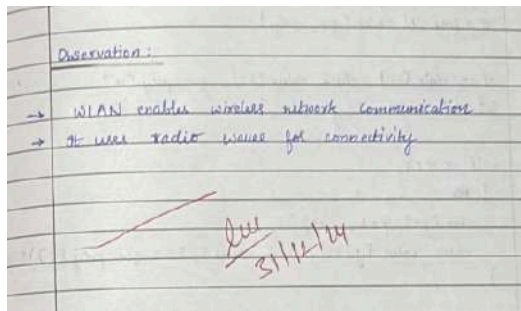 Observation :
→ WLAN enables wireless network communication
→ It uses radio waves for connectivity
31/12/24